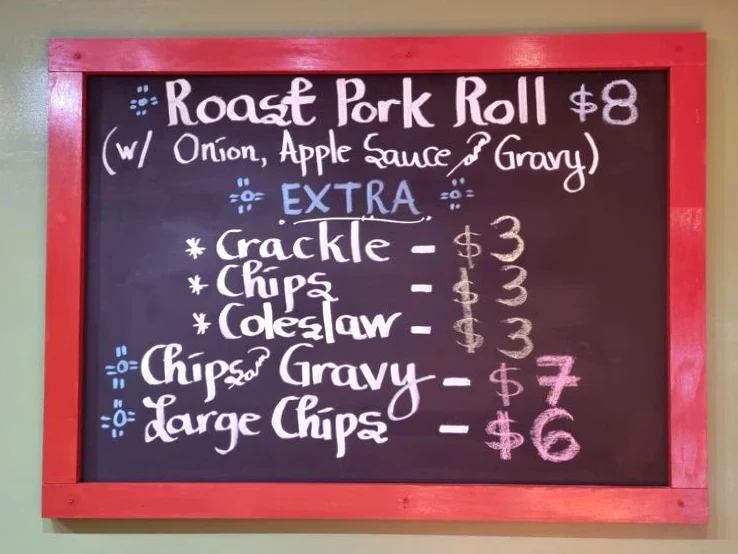 Roast Pork Roll $8
(w/ Onion, Apple Sauce & Gravy)
EXTRA
* Crackle - $3
* Chips - $3
* Coleslaw - $3
Chips and Gravy - $7
Large Chips - $6